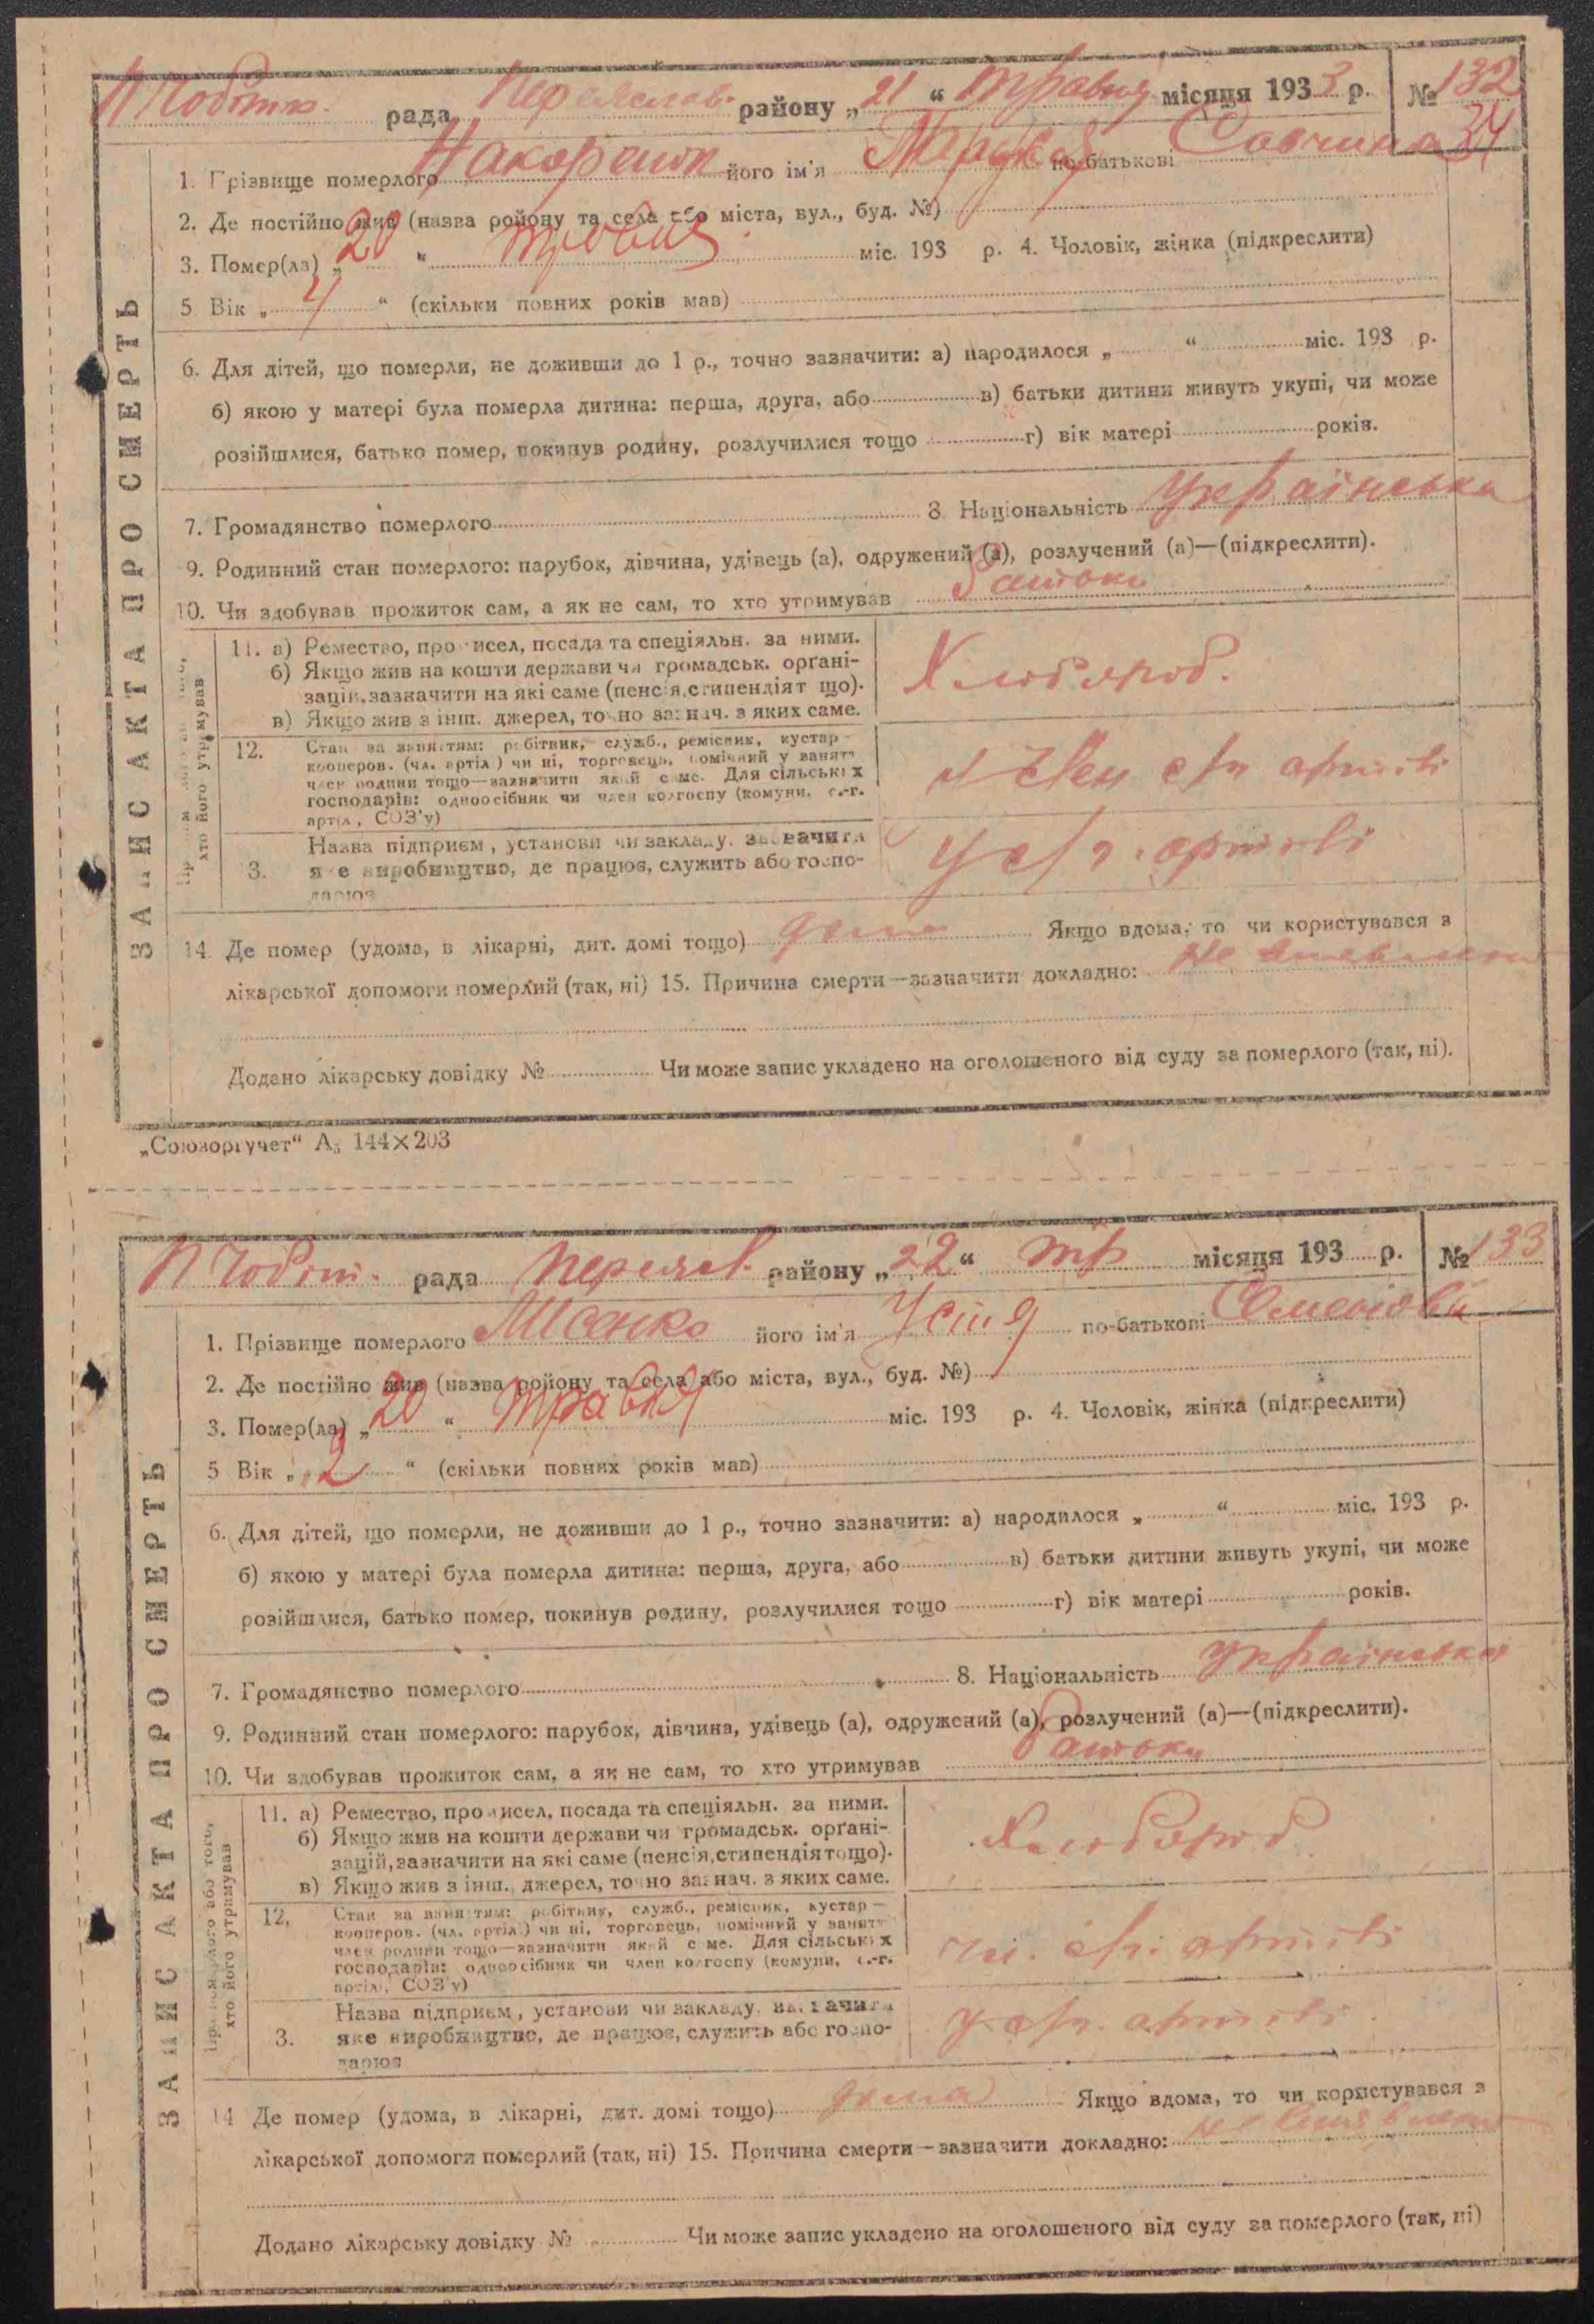 рада Переяслав. району „21“ травня місяця 1933 р. № 132
34
1. Прізвище померлого Накорешок його ім'я по-батькові Савчина
2. Де постійно жив (назва ройону та села або міста, вул., буд. №)
3. Помер(ла) „20“ травня міс. 193 р. 4. Чоловік, жінка (підкреслити)
5 Вік „4“ (скільки повних років мав)
6. Для дітей, що померли, не доживши до 1 р., точно зазначити: а) народилося „ “ міс. 193 р.
б) якою у матері була померла дитина: перша, друга, або в) батьки дитини живуть укупі, чи може
розійшлися, батько помер, покинув родину, розлучилися тощо г) вік матері років.
7. Громадянство померлого 8. Національність українська
9. Родинний стан померлого: парубок, дівчина, удівець (а), одружений (а), розлучений (а)—(підкреслити).
10. Чи здобував прожиток сам, а як не сам, то хто утримував батьки
11. а) Ремество, промисел, посада та спеціяльн. за ними.
б) Якщо жив на кошти держави чи громадськ. орґані-
зацій, зазначити на які саме (пенсія, стипендіят що).
в) Якщо жив з інш. джерел, точно зазнач. з яких саме.
Хлібороб.
12. Стан за заняттям: робітник, служб., ремісник, кустар—
кооперов. (чл. артіл.) чи ні, торговець, помічний у занятт
член родини тощо—зазначити який саме. Для сільських
господарів: одноосібник чи член колгоспу (комуни, с.-г.
артіл., СОЗ'у)
член с/г артілі
3. Назва підприєм., установи чи закладу, зазначити
яке виробництво, де працює, служить або госпо-
дарює
У с/г. артілі
14. Де помер (удома, в лікарні, дит. домі тощо) дома Якщо вдома, то чи користувався з
лікарської допомоги померлий (так, ні) 15. Причина смерти—зазначити докладно: не
Додано лікарську довідку № Чи може запис укладено на оголошеного від суду за померлого (так, ні).
ЗАПИС АКТА ПРО СМЕРТЬ
„Союзоргучет“ А5 144×203
рада Переясл. району „22“ тр місяця 193 р. № 133
1. Прізвище померлого його ім'я Устя по-батькові Семенова
2. Де постійно жив (назва ройону та села або міста, вул., буд. №)
3. Помер(ла) „20“ травня міс. 193 р. 4. Чоловік, жінка (підкреслити)
5 Вік „2“ (скільки повних років мав)
6. Для дітей, що померли, не доживши до 1 р., точно зазначити: а) народилося „ “ міс. 193 р.
б) якою у матері була померла дитина: перша, друга, або в) батьки дитини живуть укупі, чи може
розійшлися, батько помер, покинув родину, розлучилися тощо г) вік матері років.
7. Громадянство померлого 8. Національність українська
9. Родинний стан померлого: парубок, дівчина, удівець (а), одружений (а), розлучений (а)—(підкреслити).
10. Чи здобував прожиток сам, а як не сам, то хто утримував батьки
11. а) Ремество, промисел, посада та спеціяльн. за ними.
б) Якщо жив на кошти держави чи громадськ. орґані-
зацій, зазначити на які саме (пенсія, стипендія тощо).
в) Якщо жив з інш. джерел, точно зазнач. з яких саме.
Хлібороб
12. Стан за заняттям: робітник, служб., ремісник, кустар—
кооперов. (чл. артіл.) чи ні, торговець, помічний у занятт
член родини тощо—зазначити який саме. Для сільських
господарів: одноосібник чи член колгоспу (комуни, с.-г.
артіл., СОЗ'у)
чл. с/г. артілі
3. Назва підприєм., установи чи закладу, зазначити
яке виробництво, де працює, служить або госпо-
дарює
У с/г. артілі
14 Де помер (удома, в лікарні, дит. домі тощо) дома Якщо вдома, то чи користувався з
лікарської допомоги померлий (так, ні) 15. Причина смерти—зазначити докладно: не
Додано лікарську довідку № Чи може запис укладено на оголошеного від суду за померлого (так, ні)
ЗАПИС АКТА ПРО СМЕРТЬ
Про померлого або того,
хто його утримував